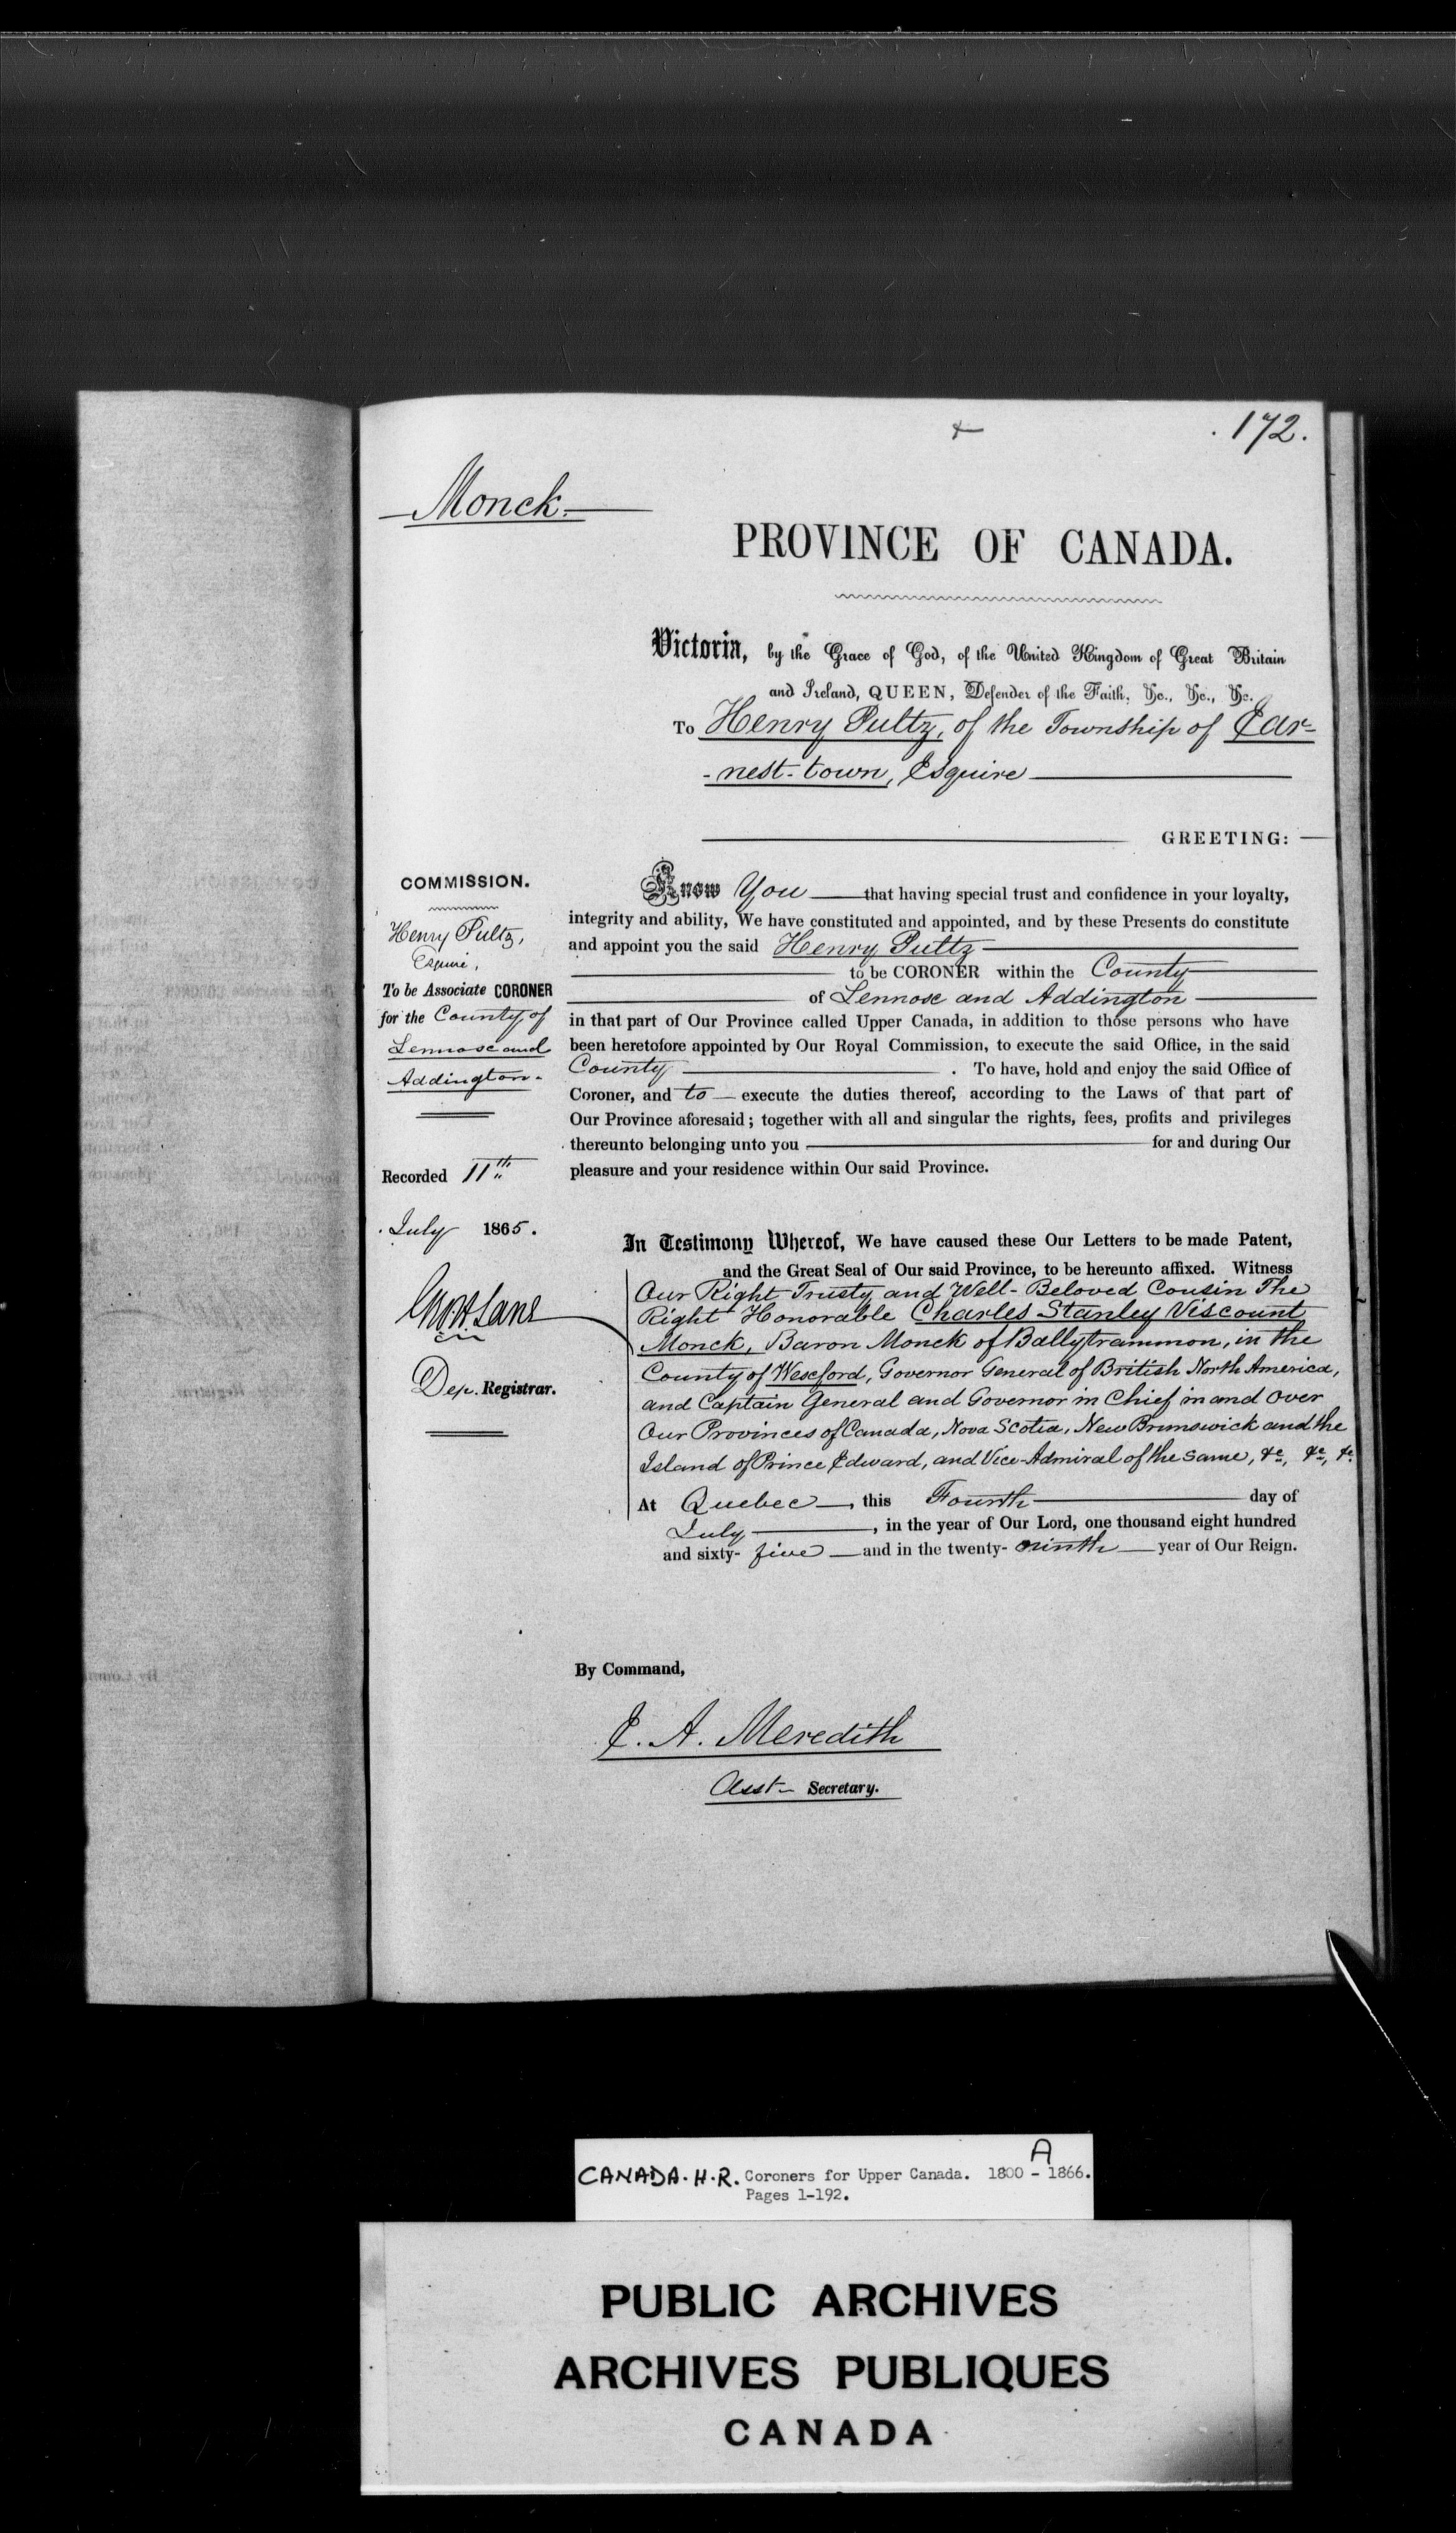 172.
Monck.
PROVINCE OF CANADA.
Victoria, by the Grace of God, of the United Kingdom of Great Britain
and Ireland, QUEEN, Defender of the Faith, &c., &c., &c.
To Henry Pultz, of the Township of Ear-
-nest-town, Esquire
GREETING:
COMMISSION.
Henry Pultz,
Esquire,
To be Associate CORONER
for the County of
Lennox and
Addington.
Recorded 11th
July 1865.
Dep. Registrar.
Know You that having special trust and confidence in your loyalty,
integrity and ability, We have constituted and appointed, and by these Presents do constitute
and appoint you the said Henry Pultz
to be CORONER within the County
of Lennox and Addington
in that part of Our Province called Upper Canada, in addition to those persons who have
been heretofore appointed by Our Royal Commission, to execute the said Office, in the said
County . To have, hold and enjoy the said Office of
Coroner, and to execute the duties thereof, according to the Laws of that part of
Our Province aforesaid; together with all and singular the rights, fees, profits and privileges
thereunto belonging unto you for and during Our
pleasure and your residence within Our said Province.
In Testimony Whereof, We have caused these Our Letters to be made Patent,
and the Great Seal of Our said Province, to be hereunto affixed. Witness
Our Right Trusty and Well-Beloved Cousin The
Right Honorable Charles Stanley Viscount
Monck, Baron Monck of Ballytrammon, in the
County of Wexford, Governor General of British North America,
and Captain General and Governor in Chief in and over
Our Provinces of Canada, Nova Scotia, New Brunswick and the
Island of Prince Edward, and Vice-Admiral of the same, &c, &c, &c.
At Quebec, this Fourth day of
July, in the year of Our Lord, one thousand eight hundred
and sixty-five and in the twenty-ninth year of Our Reign.
By Command,
E. A. Meredith
Asst Secretary.
CANADA. H.R. Coroners for Upper Canada. 1800 - 1866. A
Pages 1-192.
PUBLIC ARCHIVES
ARCHIVES PUBLIQUES
CANADA